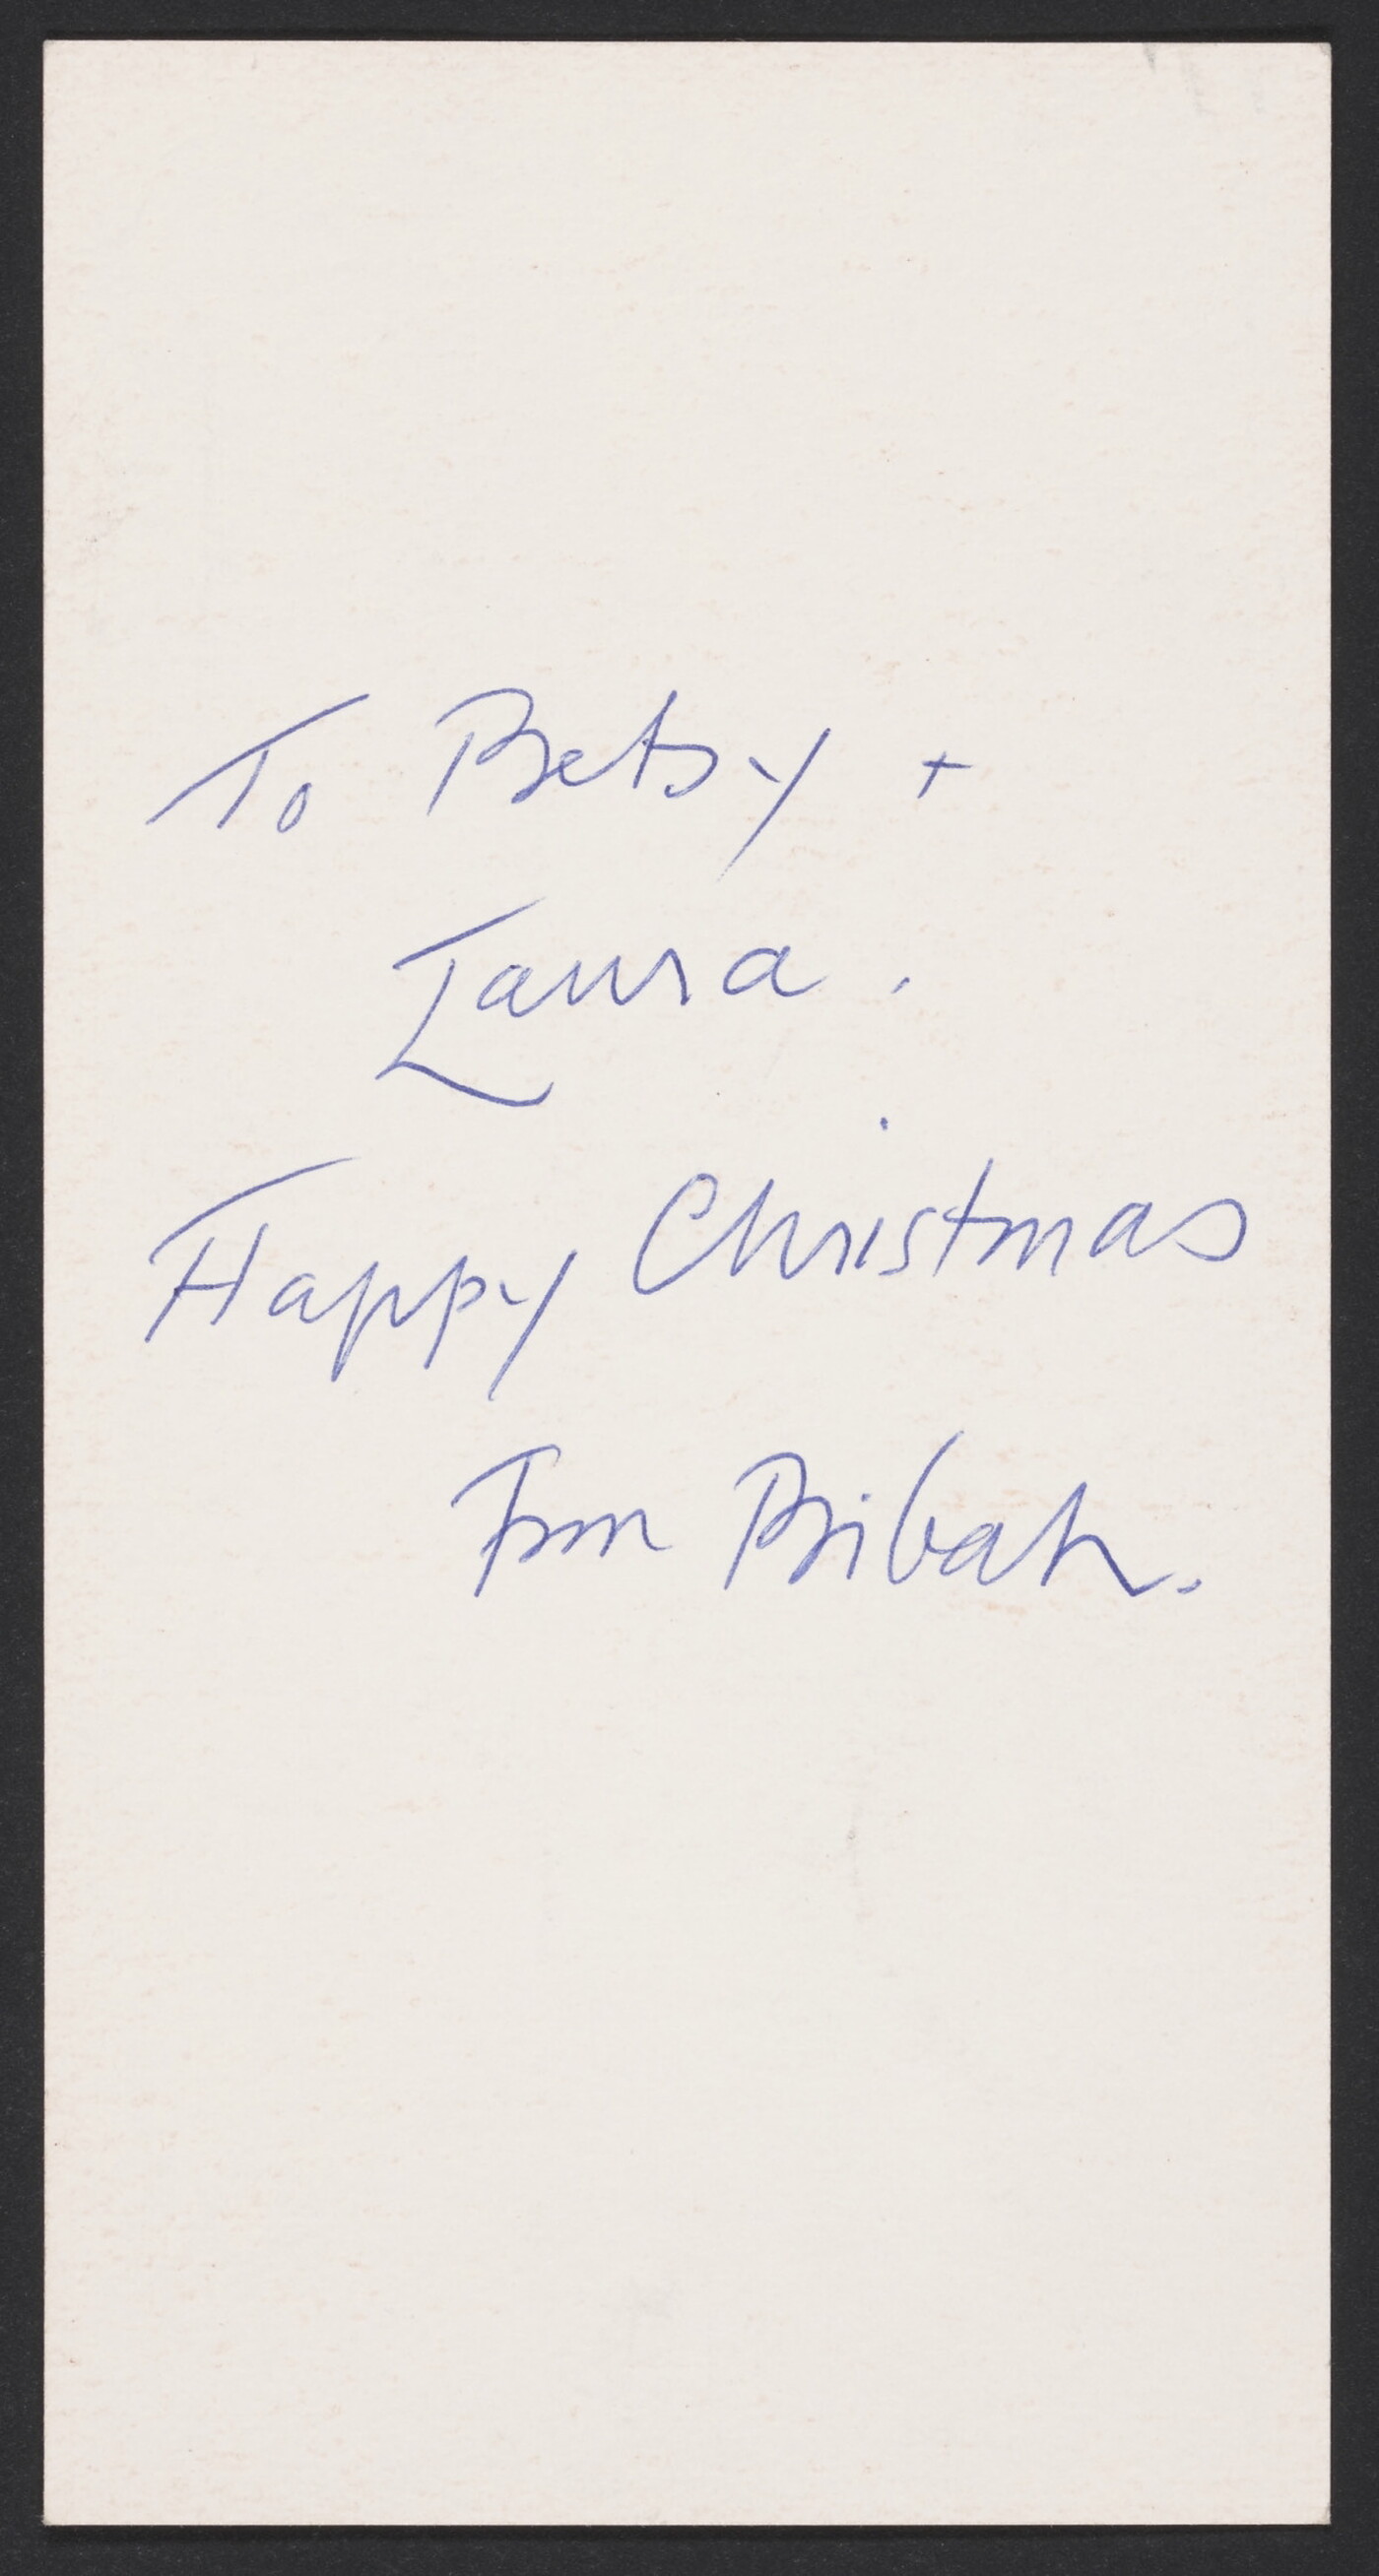 To Betsy +
Laura.
Happy Christmas
From Bibah.